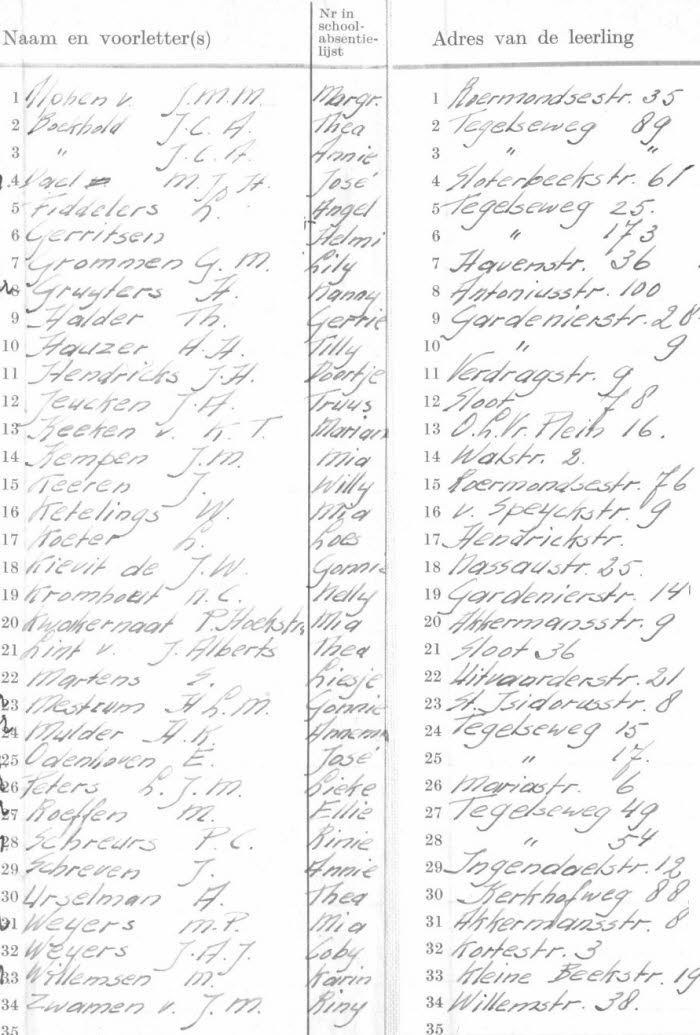 Naam en voorletter(s) Nr in school-absentie-lijst Adres van de leerling
1 v. J.M.M. Margr. 1 Roermondsestr. 35
2 Bockhold J.C.A. Thea 2 Tegelseweg 89
3 " J.C.A. Annie 3 " "
4 M.J.H. José 4 Sloterbeekstr. 61
5 Fiddelers L. Angel 5 Tegelseweg 25.
6 Gerritsen Helmi 6 " 173
7 Grommen G. M. Lily 7 Havenstr. 36
8 Gruyters H. Nanny 8 Antoniusstr. 100
9 Halder Th. Gerrie 9 Gardenierstr. 28
10 Hauzer A.H. Tilly 10 " 9
11 Hendricks J.H. Doortje 11 Verdragstr. 9
12 Jeucken J.A. Truus 12 Sloot 78
13 Keeken v. K. T. Marian 13 O.L.Vr. Plein 16.
14 Kempen J.M. Mia 14 Walstr. 2.
15 Keeren J. Willy 15 Roermondsestr. 76
16 Ketelings W. Mia 16 v. Speyckstr. 9
17 Koeter L. Loes 17 Hendrickstr.
18 Kievit de J.W. Gonnie 18 Nassaustr. 25.
19 Kromhout N.C. Nelly 19 Gardenierstr. 14
20 Kwakernaat P. Hoekstra Mia 20 Akkermansstr. 9
21 Lint v. J. Alberts Thea 21 Sloot 36
22 Martens S. Liesje 22 Uitvaarderstr. 21
23 Mestrum H L.M. Gonnie 23 St. Isidorusstr. 8
24 Mulder A.K. Annemi 24 Tegelseweg 15
25 Odenhoven E. José 25 " 17.
26 Peters L.J.M. Lieke 26 Mariastr. 6
27 Roeffen M. Ellie 27 Tegelseweg 49
28 Schreurs P.C. Rinie 28 " 54
29 Schreven J. Annie 29 Ingendaelstr. 12
30 Urselman A. Thea 30 Kerkhofweg 88
31 Weyers M.P. Mia 31 Akkermansstr. 8
32 Weyers J.A.J. Coby 32 Kortestr. 3
33 Willemsen M. Karin 33 Kleine Beekstr. 19
34 Zwamen v. J.M. Riny 34 Willemstr. 38.
35 35